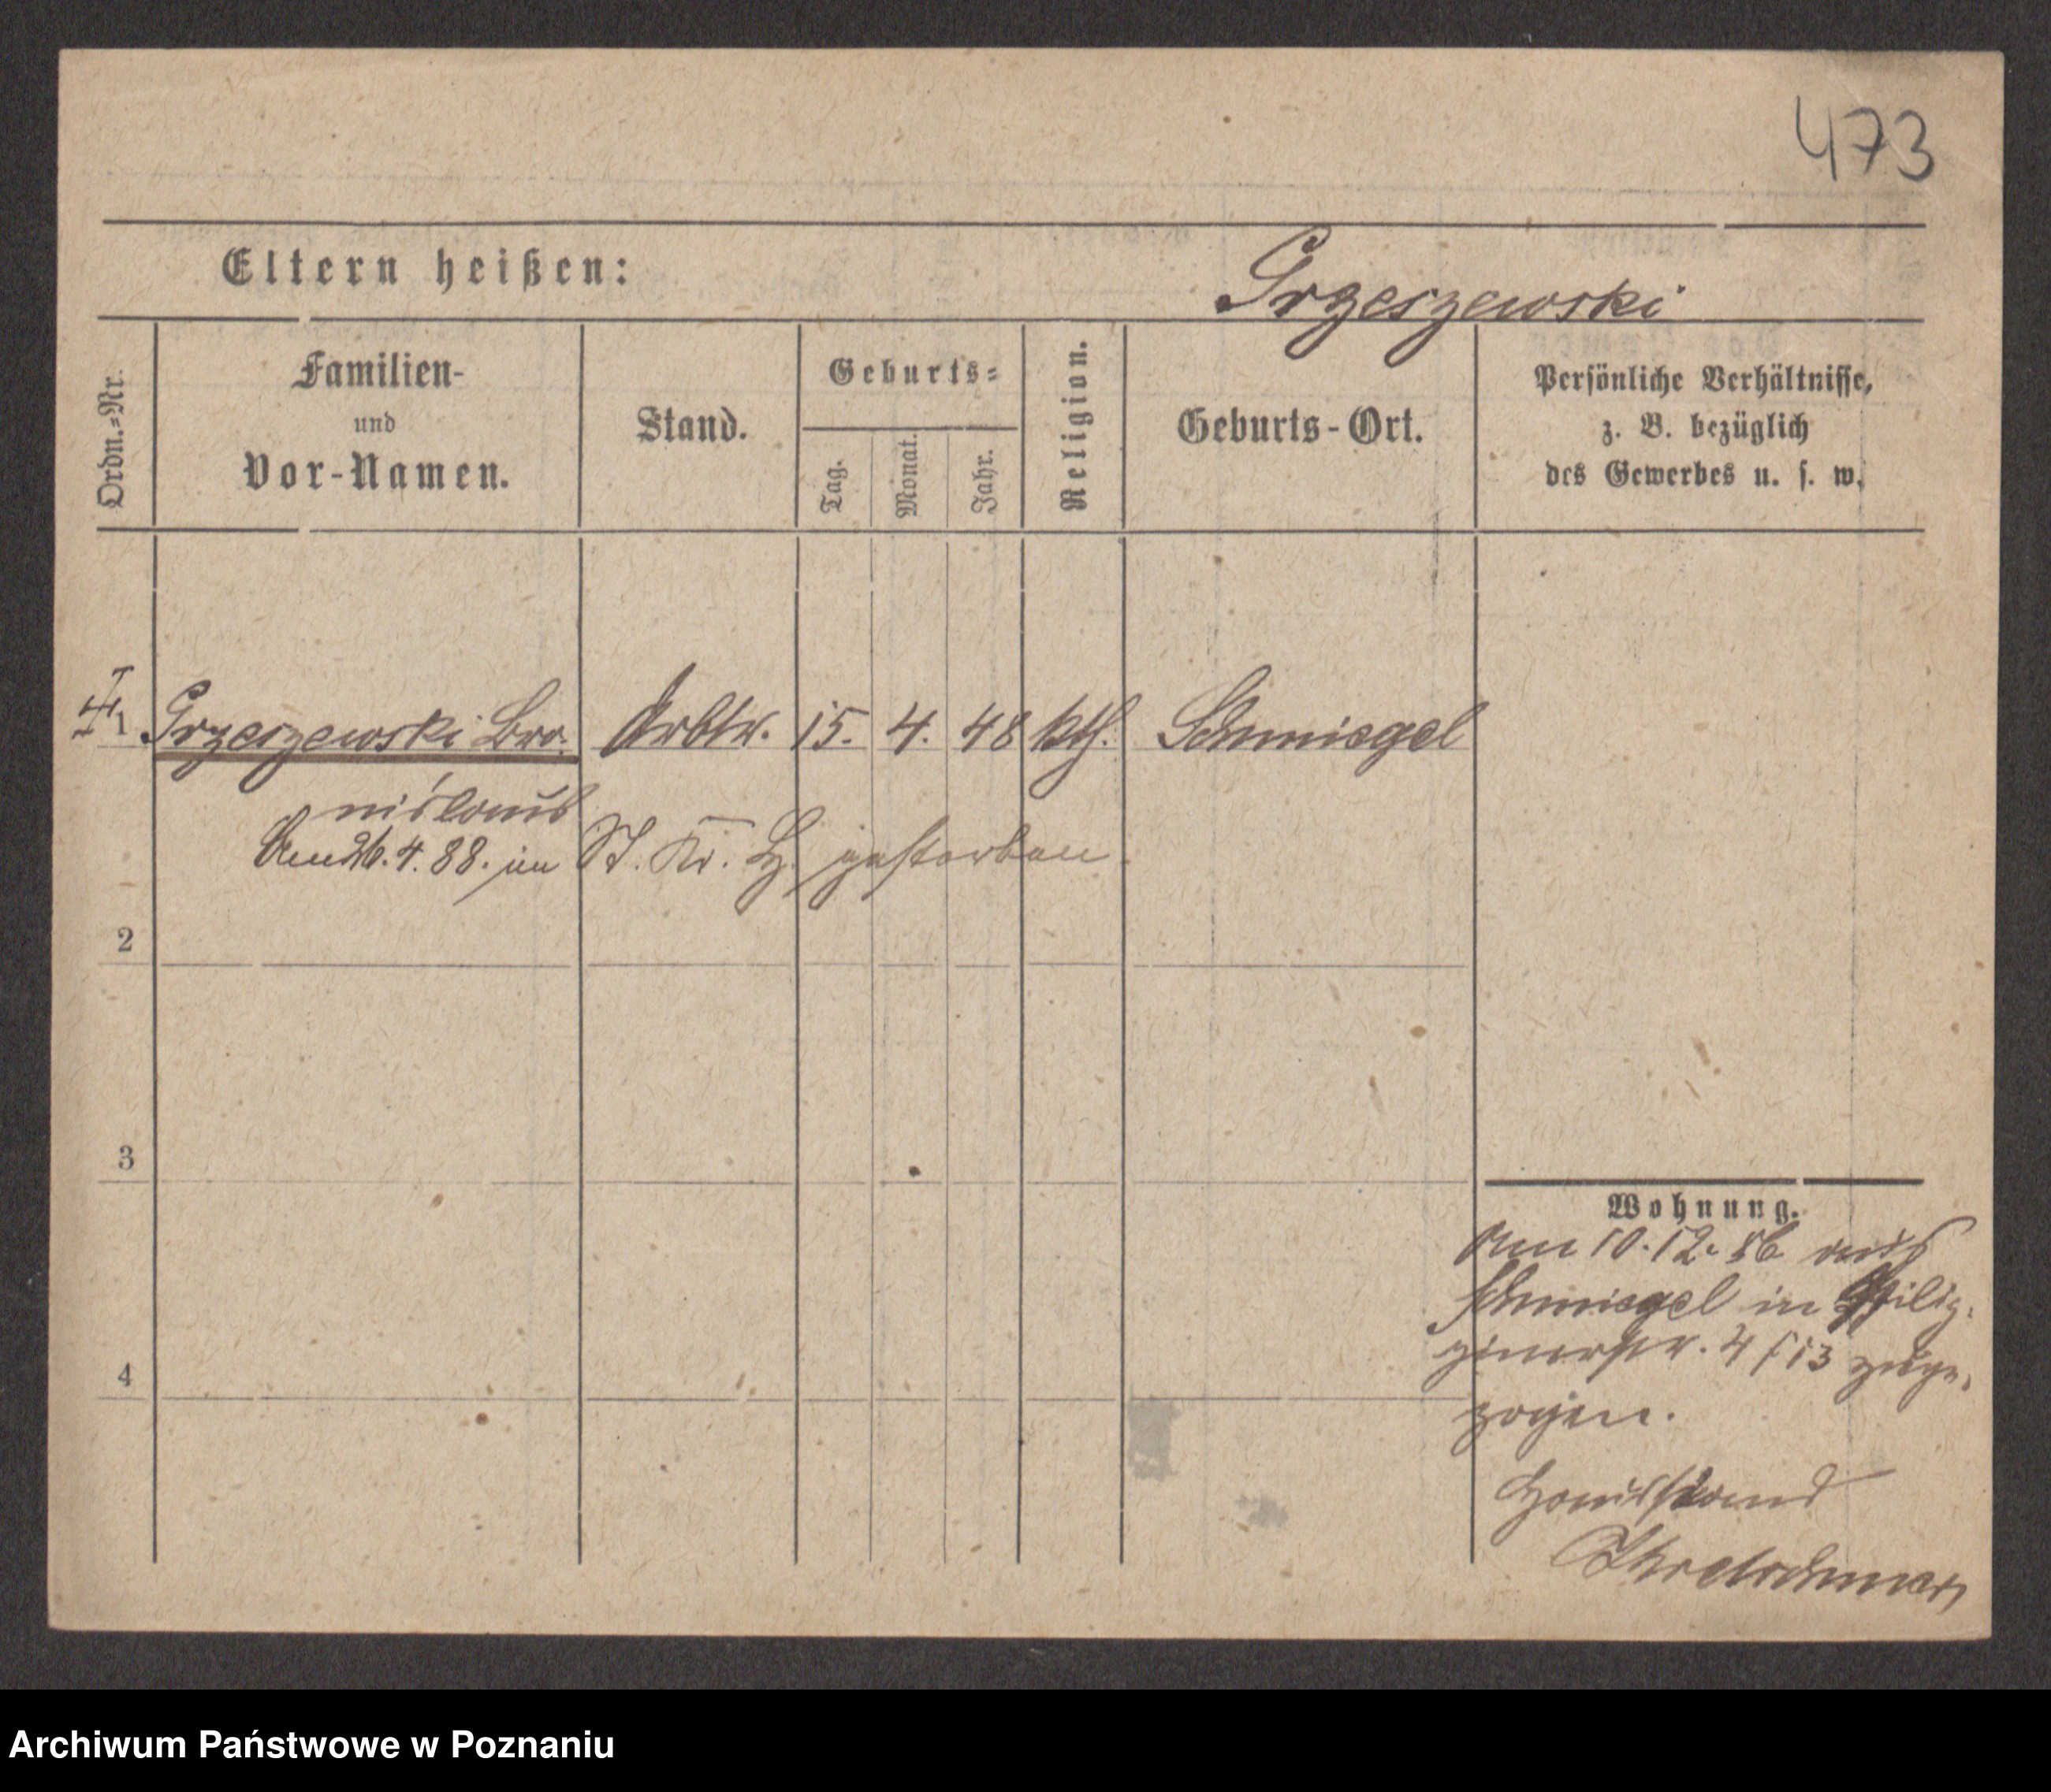 473
Eltern heißen:
Grzeszewski
Ordn.=Nr.
Familien-
und
Vor-Namen.
Stand.
Geburts=
Tag.
Monat.
Jahr.
Religion.
Geburts-Ort.
Persönliche Verhältnisse,
z. B. bezüglich
des Gewerbes u. s. w.
1 Grzeszewski Bro. Arbtr. 15. 4. 48 kth. Schmiegel
nislaus
Am 26. 4. 88. im St. Kr. H. gestorben.
2
3
4
Wohnung.
Am 10. 12. 86 aus
Schmiegel in
4/13 zuge-
zogen.
Hausstand
Archiwum Państwowe w Poznaniu